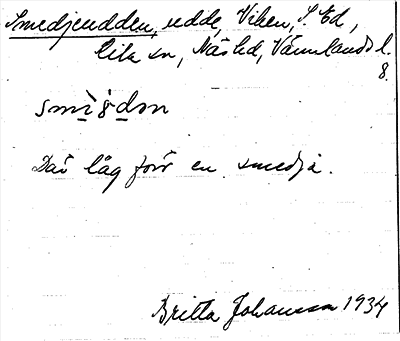 Smedjeudden, udde, Viken, S. Ed,
Eda sn, Näs hd, Värmlands l.
8.
Där låg förr en smedja.
Britta Johansson 1934